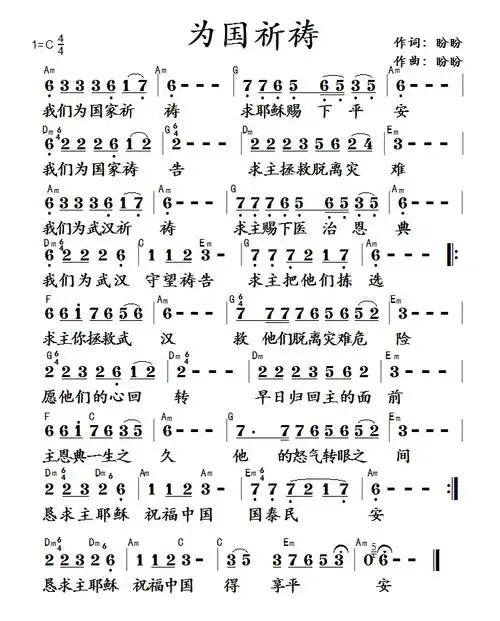 为国祈祷
1=C 4/4
作词：盼盼
作曲：盼盼
Am G Am
6 3 3 3 6 1 7 | 6 - - - | 7 7 6 5 6 5 3 5 | 6 - - -
我们为国家祈 祷 求耶稣赐 下平 安
Dm6/4 G6/4 Dm Em
6 2 2 2 6 1 2 | 2 - - - | 2 2 3 2 3 5 6 2 4 | 3 - - -
我们为国家祷 告 求主拯救脱离灾 难
Am G Am
6 3 3 3 6 1 7 | 6 - - - | 7 7 7 6 5 6 5 3 5 | 6 - - -
我们为武汉祈 祷 求主赐下医 治恩 典
Dm6/4 C Em G Am
6 2 2 2 6 | 1 1 2 3 - | 7 7 7 7 2 1 7 | 6 - - - :
我们为武汉 守望祷告 求主把他们拣 选
F Am G6/4 Em
6 6 1 7 6 5 6 | 6 - - - | 7 7 7 6 5 6 5 2 | 3 - - -
求主你拯救武 汉 救 他们脱离灾难危 险
G6/4 Dm6/4 Dm Em
2 2 2 2 6 1 2 | 2 - - - | 2 2 2 3 5 6 2 4 | 3 - - -
愿他们的心回 转 早日归回主的面 前
F C Am G Em
6 6 1 7 6 3 5 | 6 - - - | 7· 7 7 6 5 6 5 2 | 3 - - -
主恩典一生之 久 他 的怒气转眼之 间
Dm6/4 Dm6 Am C Em6/4 Am
2 2 3 2 6 | 1 1 2 3 - | 7 7 7 7 2 1 7 | 6 - - - :
恳求主耶稣 祝福中国 国泰民 安
Dm6/4 Dm6 Am C Em Am
2 2 3 2 6 | 1 1 2 3 - | 3 5 3 7 6 5 3 | 0 6 - -
恳求主耶稣 祝福中国 得 享平 安